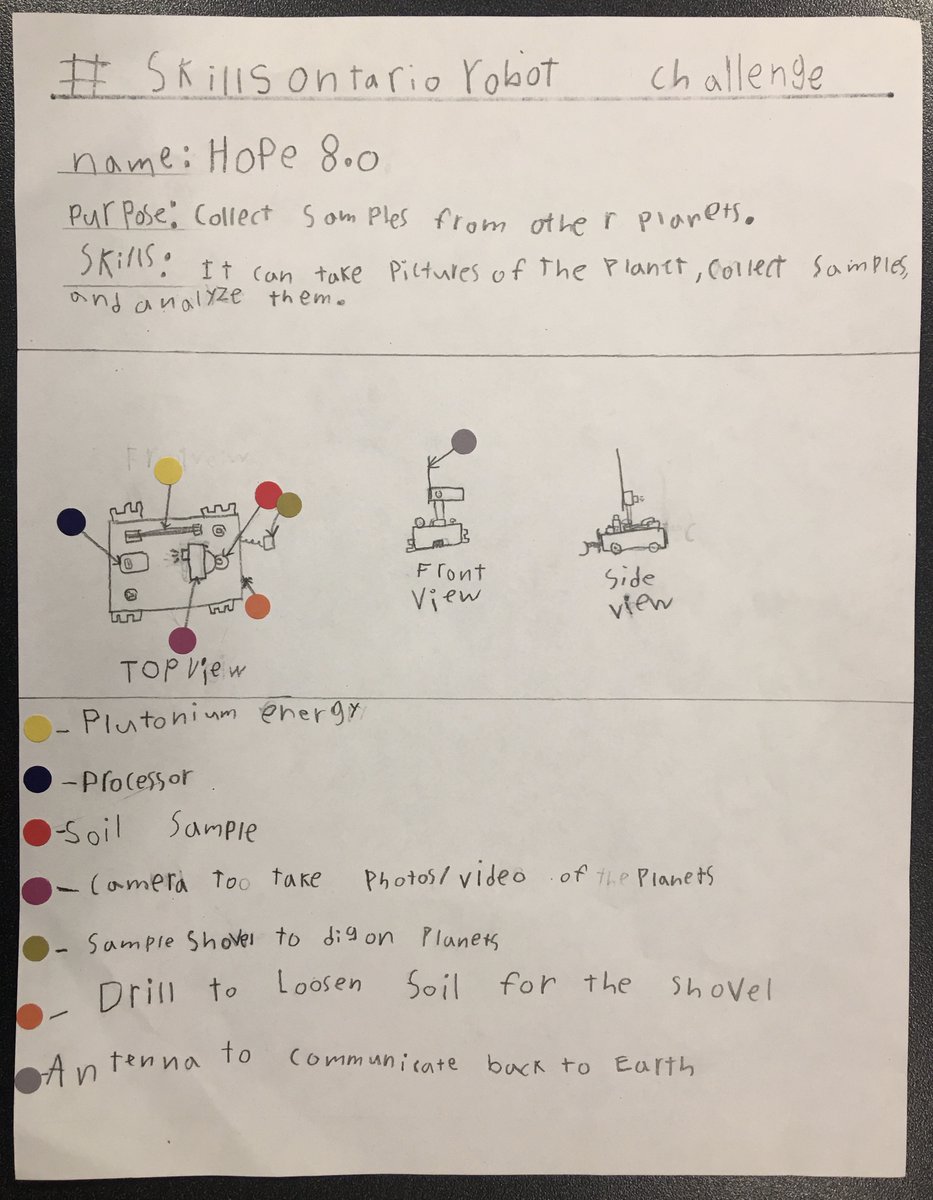 # Skills ontario robot challenge
name: Hope 8.0
Purpose: Collect samples from other planets.
Skills: It can take Pictures of The Planet, collect samples,
and analyze them.
TOP View
Front
View
Side
view
- Plutonium energy
- Processor
- Soil Sample
- Camera Too take Photos/video of the Planets
- Sample Shovel to dig on Planets
- Drill to Loosen Soil for the shovel
- Antenna to communicate back to Earth